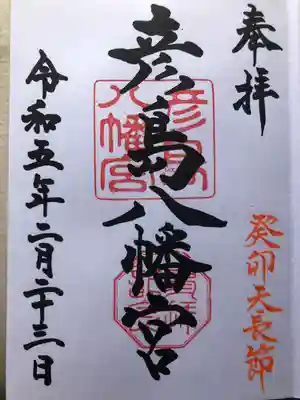 奉拝
癸卯天長節
彦島八幡宮
彦島八幡宮
令和五年二月二十三日